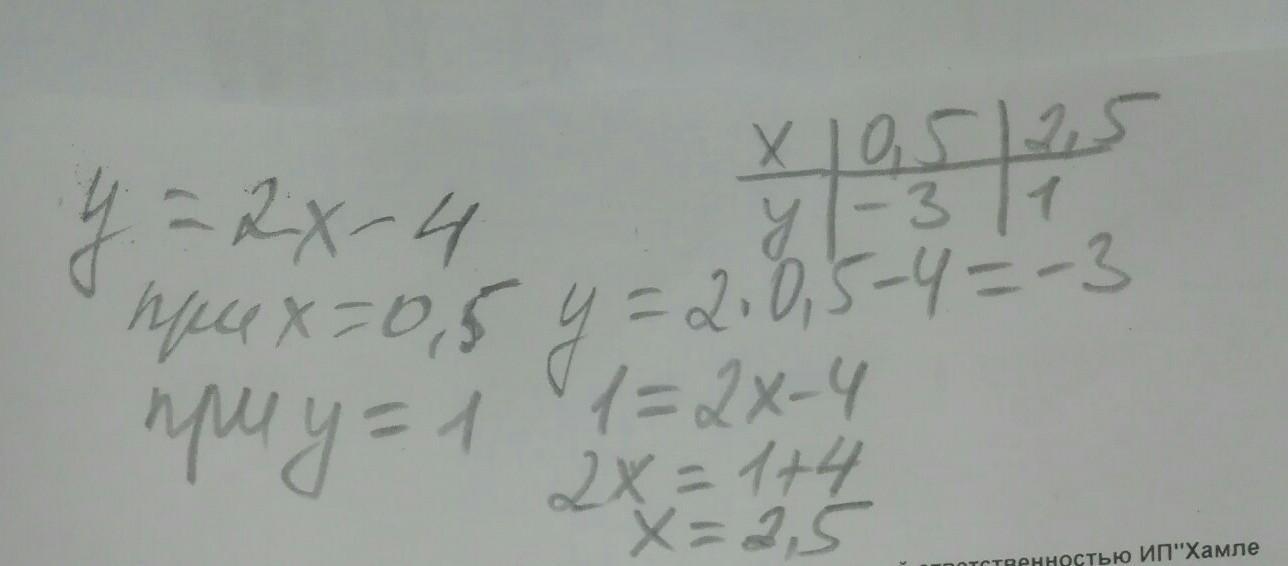 x | 0,5 | 2,5
y | -3 | 1
y = 2x - 4
при x = 0,5 y = 2·0,5 - 4 = -3
при y = 1 1 = 2x - 4
2x = 1+4
x = 2,5
ответственностью ИП"Хамле